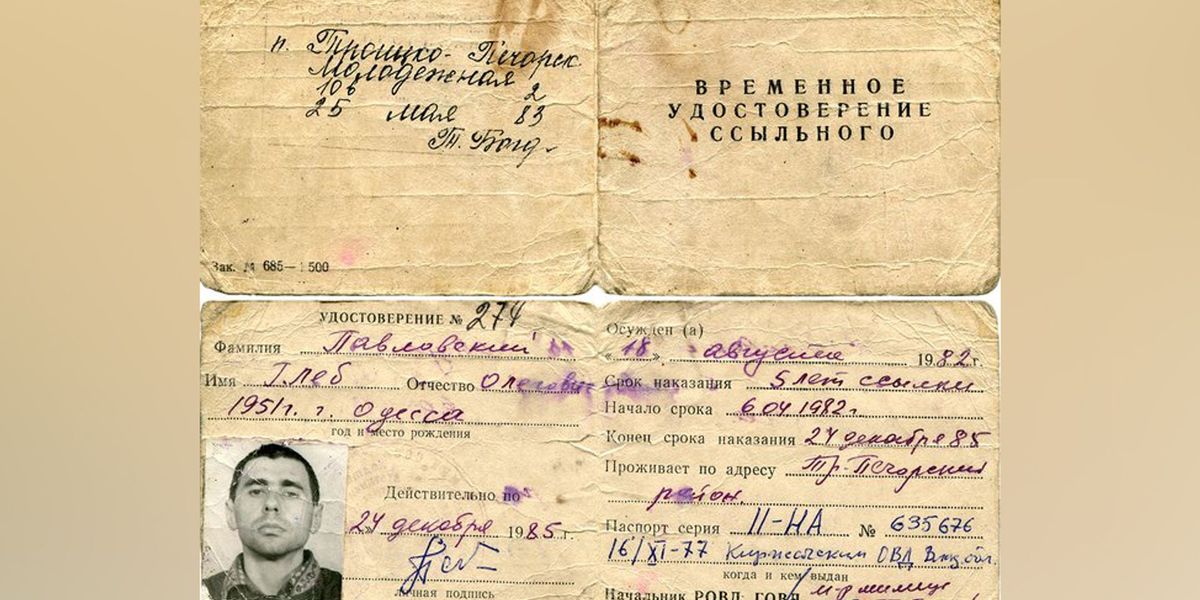 п. Троицко-Печорск
Молодежная
10в 2
25 мая 83
Т. Богд.
ВРЕМЕННОЕ
УДОСТОВЕРЕНИЕ
ССЫЛЬНОГО
Зак. № 685—1500
УДОСТОВЕРЕНИЕ № 274
Фамилия Павловский
Имя Глеб Отчество Олегович
1951г. г. Одесса
год и место рождения
Действительно по
24 декабря 1985г.
личная подпись
Осужден (а)
«18» августа 1982г.
Срок наказания 5 лет ссылки
Начало срока 6 04 1982г
Конец срока наказания 24 декабря 85
Проживает по адресу Тр-Печорский
район.
Паспорт серия II-НА № 635676
16/XI-77 Киржачским ОВД Влад.обл.
когда и кем выдан
Начальник РОВД, ГОВД м-р милиц